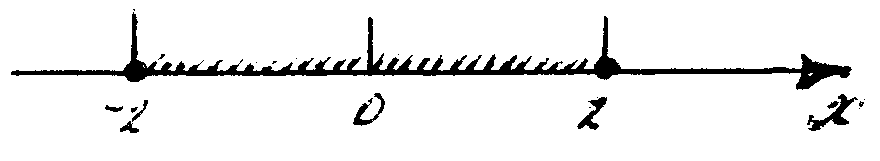 -2 0 2 x